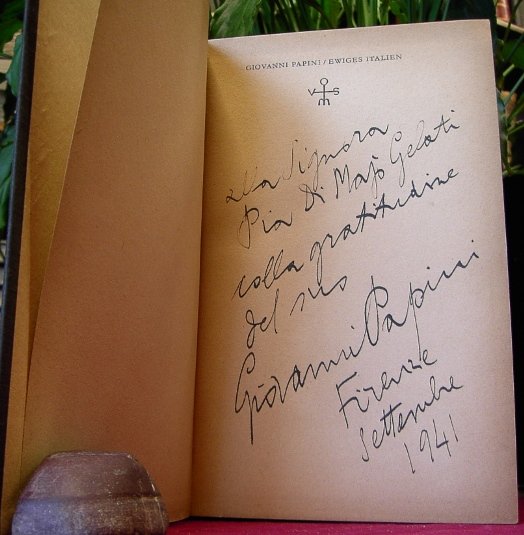 GIOVANNI PAPINI / EWIGES ITALIEN
V S
alla Signora
Pia Di Majo Gelati
colla gratitudine
del suo
Giovanni Papini
Firenze
Settembre
1941